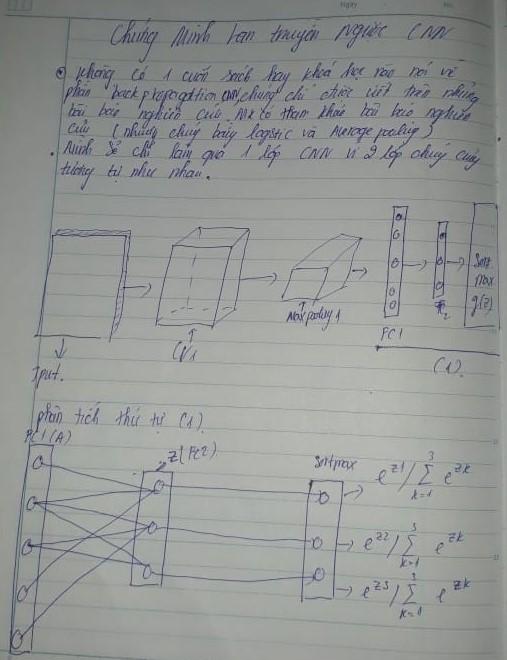 Chứng Minh Lan truyền Ngược CNN
Không có 1 cuốn sách hay khoá học nào nói về
phần backpropagation CNN chúng chỉ được viết trên những
bài báo nghiên cứu. Mk có tham khảo bài báo nghiên
cứu (nhưng chúng bằng logistic và Average pooling)
Mình sẽ chỉ làm qua 1 lớp CNN vì 2 lớp chúng cũng
tương tự như nhau.
Soft
max
g(z)
Max pooling 1
FC1
CV1
Iput.
(1).
phân tích thứ tự (1).
FC1(A)
Z(FC2)
Softmax
e^{z1} / ∑_{k=1}^{3} e^{zk}
e^{z2} / ∑_{k=1}^{3} e^{zk}
e^{z3} / ∑_{k=1}^{3} e^{zk}